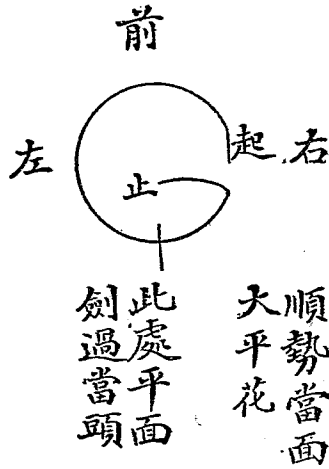 前
左
起
右
止
順勢當面
大平花
此處平面
劍過當頭